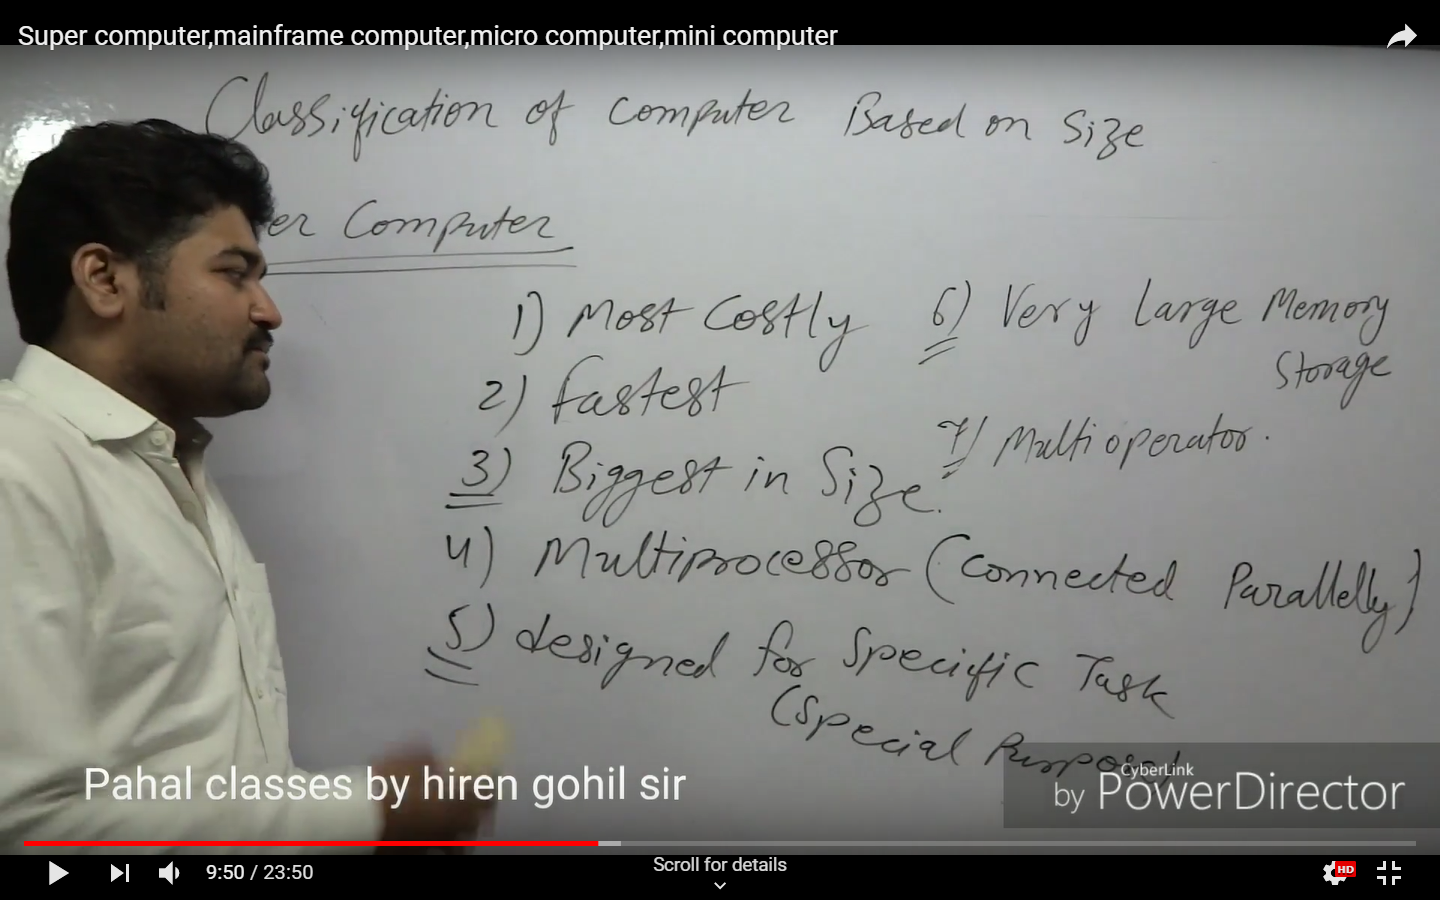 Super computer,mainframe computer,micro computer,mini computer
Classification of Computer Based on Size
er Computer
1) Most Costly
2) fastest
3) Biggest in Size.
4) Multiprocessor (Connected Parallelly)
5) designed for Specific Task
(Special Purpose)
6) Very Large Memory
Storage
7) Multi operator.
Pahal classes by hiren gohil sir
CyberLink
by PowerDirector
9:50 / 23:50
Scroll for details
HD